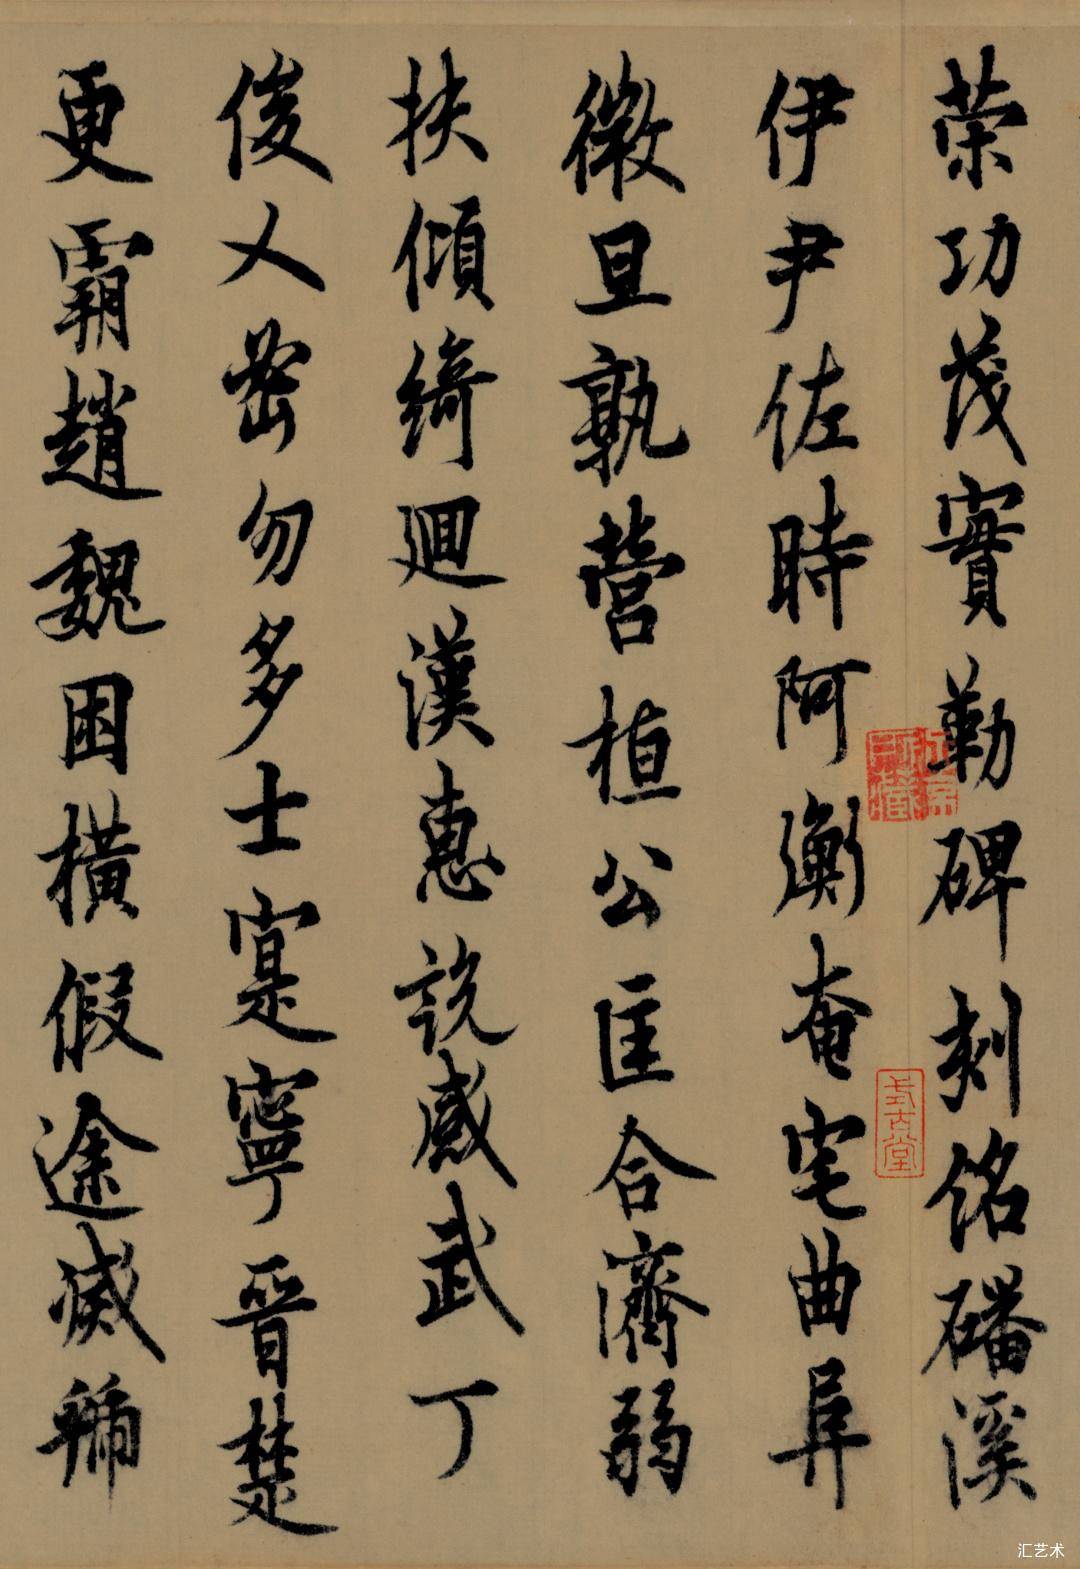 策功茂實勒碑刻銘磻溪
伊尹佐時阿衡奄宅曲阜
微旦孰營桓公匡合濟弱
扶傾綺迴漢惠說感武丁
俊乂密勿多士寔寧晉楚
更霸趙魏困橫假途滅虢
式古堂
汇艺术